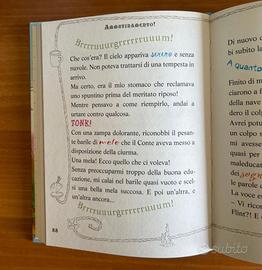 Ammutinamento!
Brrrruuurgrrrrrruuum!
Che cos'era? Il cielo appariva sereno e senza
nuvole. Non poteva trattarsi di una tempesta in
arrivo!
Ma certo, era il mio stomaco che reclamava
uno spuntino prima del meritato riposo!
Mentre pensavo a come riempirlo, andai a
urtare contro qualcosa.
TONK!
Con una zampa dolorante, riconobbi il pesan-
te barile di mele che il Conte aveva messo a
disposizione della ciurma.
Una mela! Ecco quello che ci voleva!
Senza preoccuparmi troppo della buona edu-
cazione, mi calai nel barile quasi vuoto e scel-
si una bella mela succosa. E poi un'altra, e
un'altra ancora...
Brrrruuurgrrrrrruuum!
88
Di nuovo
A quanto
Finito di m
ciarono a f
della nave
Avrei potut
un colpo
con
maleducat
dei sogni
La voce e
– Vi rico
Flint?! E
subito